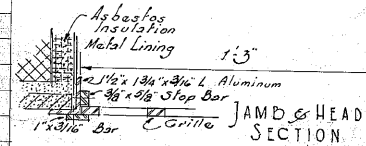 Asbestos
Insulation
Metal Lining
1'-3"
1½" x 1¾" x 3/16" L Aluminum
3/8" x 5/8" Stop Bar
1" x 3/16" Bar
Grille
JAMB & HEAD
SECTION